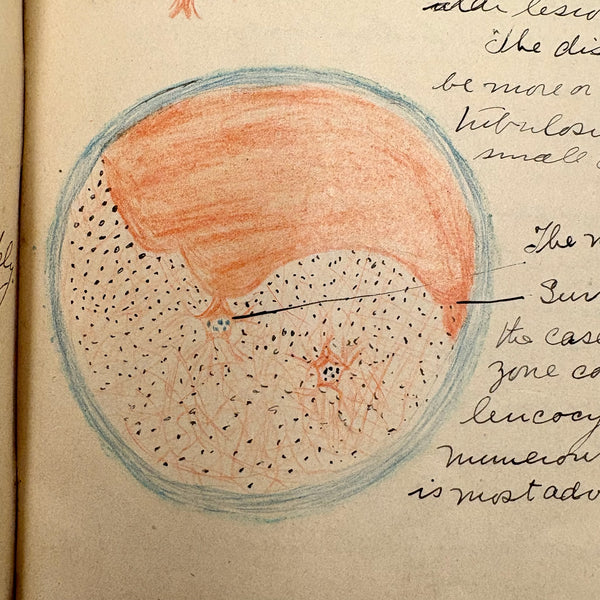 lesio
The dis
be more or
tubulosi
small
The n
Surr
the case
zone co
leucocy
numerou
is most adv
ely